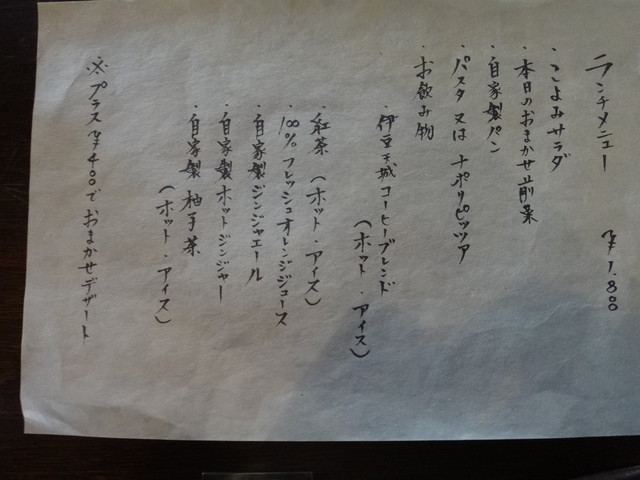 ランチメニュー ¥1.800
・こよみサラダ
・本日のおまかせ前菜
・自家製パン
・パスタ又はナポリピッツァ
・お飲み物
・伊豆天城コーヒーブレンド
(ホット・アイス)
・紅茶(ホット・アイス)
・100%フレッシュオレンジジュース
・自家製ジンジャエール
・自家製ホットジンジャー
・自家製柚子茶
(ホット・アイス)
※プラス¥400でおまかせデザート